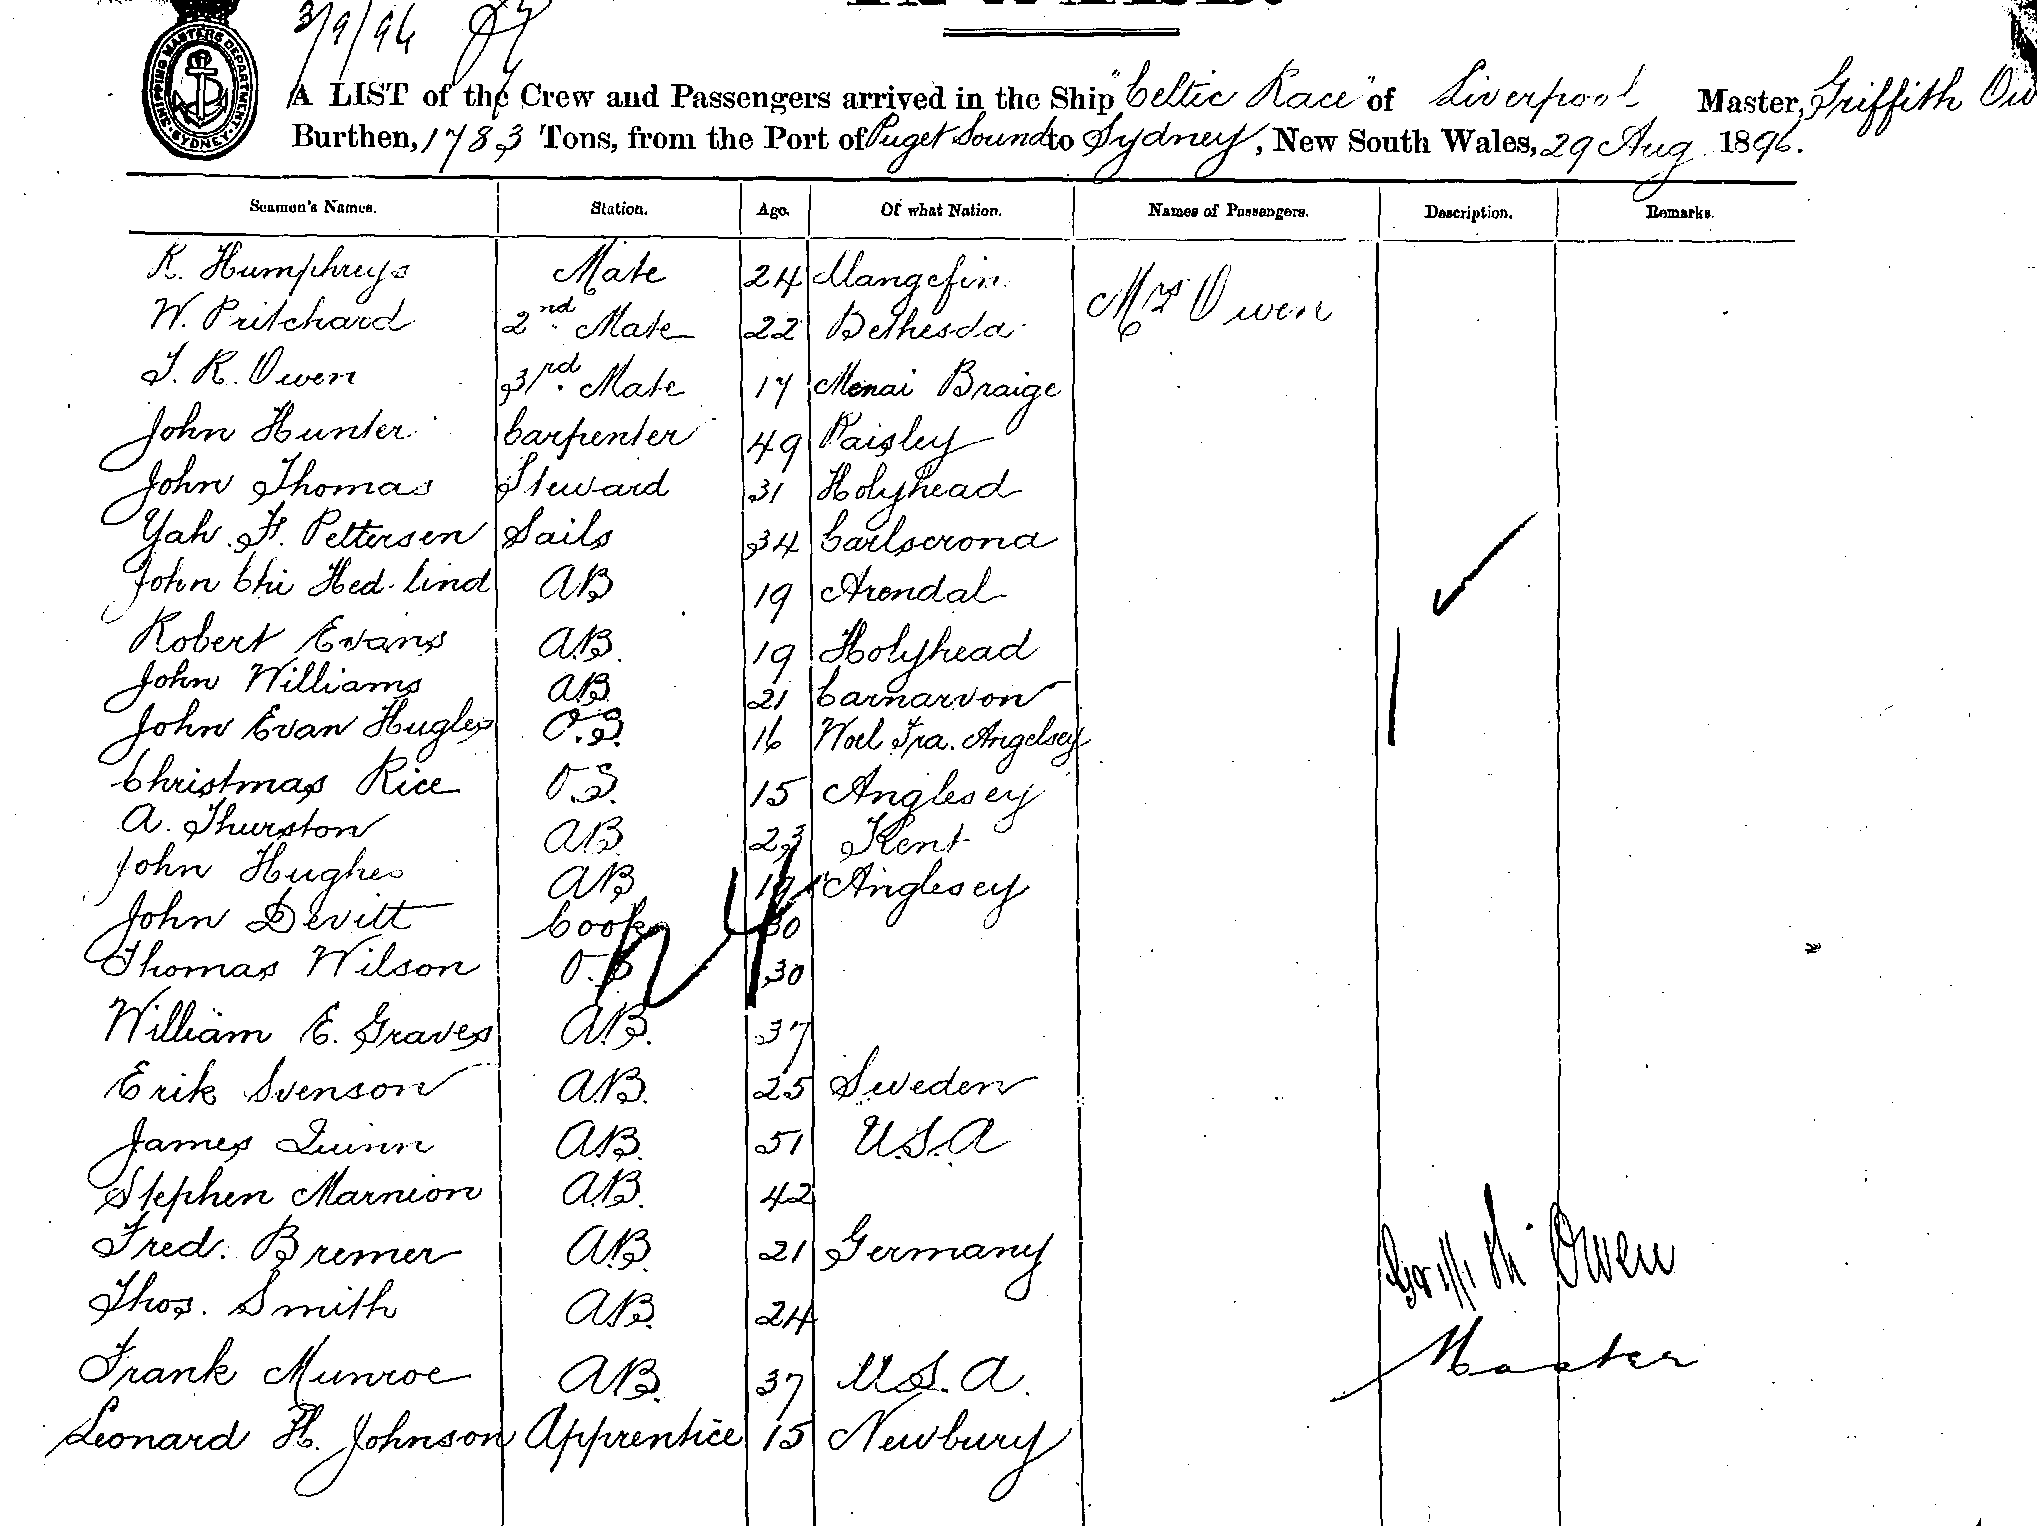 3/9/96
SHIPPING MASTERS DEPARTMENT SYDNEY
A LIST of the Crew and Passengers arrived in the Ship "Celtic Race" of Liverpool Master, Griffith Ow
Burthen, 1783 Tons, from the Port of Puget Sound to Sydney, New South Wales, 29 Aug 1896.
Seamen's Names. Station. Age. Of what Nation. Names of Passengers. Description. Remarks.
R. Humphreys Mate 24 Mrs Owen
W. Pritchard 2nd Mate 22 Bethesda
3rd Mate 17 Menai Braige
John Hunter Carpenter 49 Paisley
John Thomas Steward 31 Holyhead
Yah. F. Pettersen Sails 34 Carlscrona
John Chi Hed. lind AB 19 Arendal
Robert Evans A.B. 19 Holyhead
John Williams AB 21 Carnarvon
John Evan Hughes O.S. 16 Angelsey
Christmas Rice O.S. 15 Anglesey
A. Thurston AB 23 Kent
John Hughes AB 19 Anglesey
John Devitt Cook 30
Thomas Wilson O.S 30
William E. Graves A.B. 37
Erik Svenson A.B. 25 Sweden
James Quinn A.B. 51 U.S.A
Stephen Marnion A.B. 42
Fred. Bremer A.B. 21 Germany
Thos. Smith A.B. 24
Frank Munroe AB. 37 U.S.A.
Leonard H. Johnson Apprentice 15 Newbury
Griffith Owen
Master